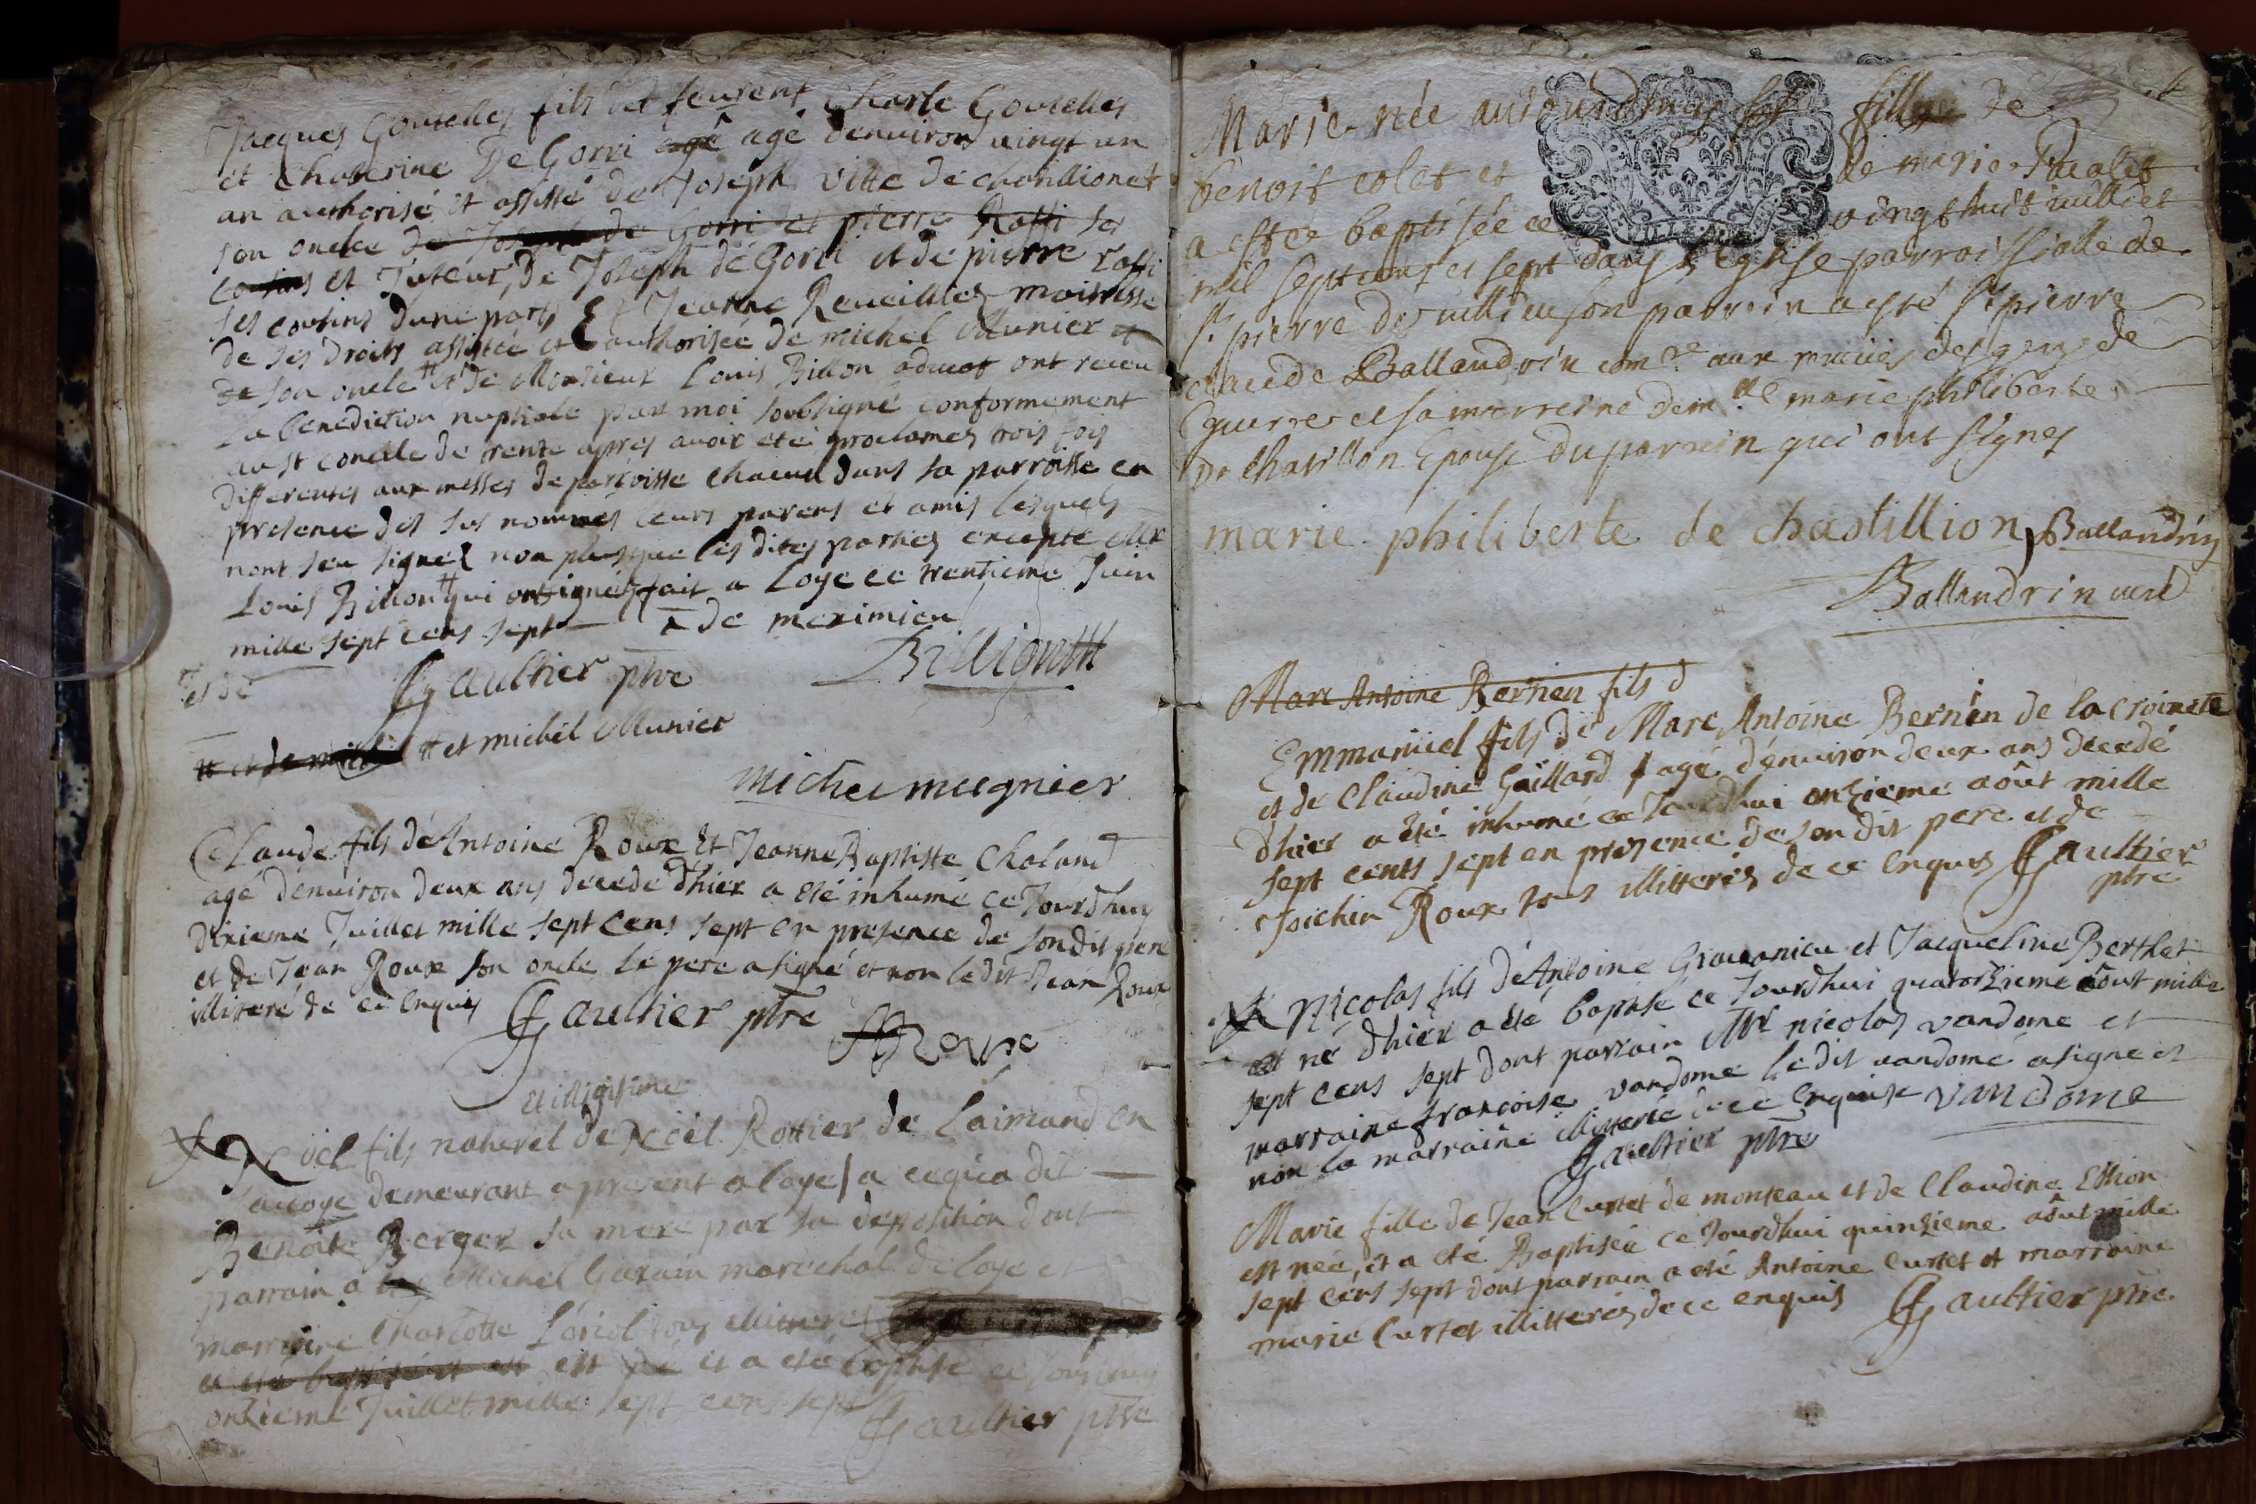 Jacques Goutelles fils de feurent Charle Goutelles
et Chaterine De Gorri agé agé denuiron vingt un
an authorisé et assisté de Joseph vitte de chatillionet
son oncle de Joseph de Gorri et pierre Raffi ses
cousins et Tuteur, de Joseph de Gorri et de pierre raffi
ses cousins dune part, Et Jeanne Reueillies maitresse
de ses Droits assistée et authorisée de michel Munier
de son oncle et de Monsieur Louis Billion aduot ont receu
La benediction nuptiale par moi soubsigné conformement
au st concile de trente apres auoir eté proclames trois fois
differentes aux messes de parroisse chacun dans sa parroisse en
presence des sus nommés leurs parens et amis lesquels
nont sceu signer non plus que les dites parties excepté Mr
Louis Billion qui ont signés fait a Loye ce trentieme Juin
mille sept cens sept de meximieu
et de Gaultier ptre
et michel Munier
michel meugnier
Claude fils dé Antoine Roux et Jeanne Baptiste Chaland
agé denuiron deux ans decedé d'hier a eté inhumé ce Jourdhuy
dixieme Juillet mille sept cens sept en presence de sondit pere
et de Jean Roux son oncle le pere a signé et non ledit Jean Roux
illiteré de ce enquis Gaultier ptre
Roux
et illigitime
Noel fils naturel de Noel Rottier de Laimand en
demeurant a present a loye a ce qu'a dit
Benoite Berger sa mere par sa deposition dont
parrain a Michel Garain marechal de loye et
marraine Charlotte Loriol tous illitteres
a eté baptisé et est né et a eté baptisé ce Jourdhuy
onzieme Juillet mille sept cens sept Gaultier ptre
Marie née aujourdhuy fille de
benoit colet et de marie Pacalet
a estée baptisée ce vingt huit iuilliet
mil septcens et sept dans l'Eglise parroissialle de
st pierre de uillieu son parrein a esté sr pierre
claude Ballandrin comre aux reuües des gens de
guerre et sa marreine demlle marie philiberte
De Chatillon Epouse du parrein qui ont signes
marie philiberte de chastillion Ballandrin
Ballandrin curé
Marc Antoine Bernien fils d
Emmanüel fils de Marc Antoine Bernin de la croisette
et de Claudine Gaillard agé d'enuiron deux ans decedé
d'hier a eté inhumé ce Jourdhui onzieme août mille
sept cents sept en presence de son dit pere et de
Joichin Roux tous illitterés de ce enquis Gaultier
ptre
Nicolas fils dé Antoine et Jacqueline Berthet
est né d'hier a été baptisé ce Jourdhui quatorzieme août mille
sept cens sept dont parrain Mr nicolas vandome et
marraine francoise vandome le dit vandome a signé et
non la marraine illitterée de ce enquise vandome
Gaultier ptre
Marie fille de Jean Curtet de monteau et de Claudine
est neé, et a eté Baptisée ce Jourdhui quinzieme aôut mille
sept cens sept dont parrain a eté Antoine Curtet et marraine
marie Curtet illitterés de ce enquis Gaultier ptre